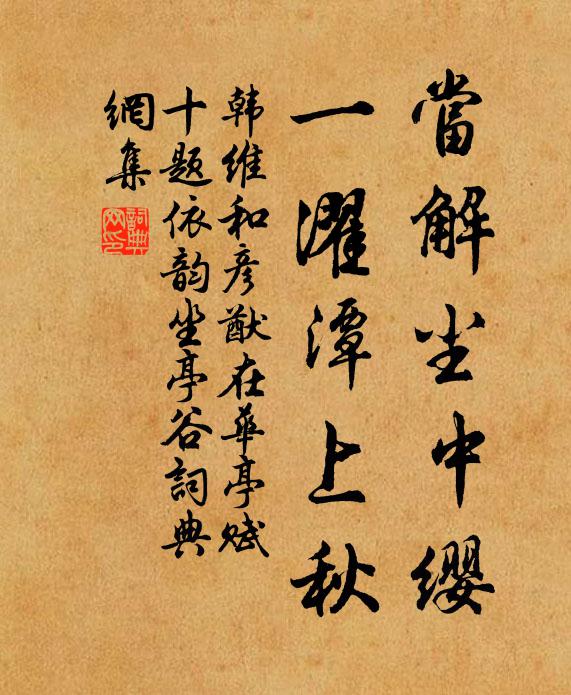 當解尘中缨
一濯潭上秋
韩維和彦猷在華亭赋
十题依韵坐亭谷詞典
網集
詞典網印